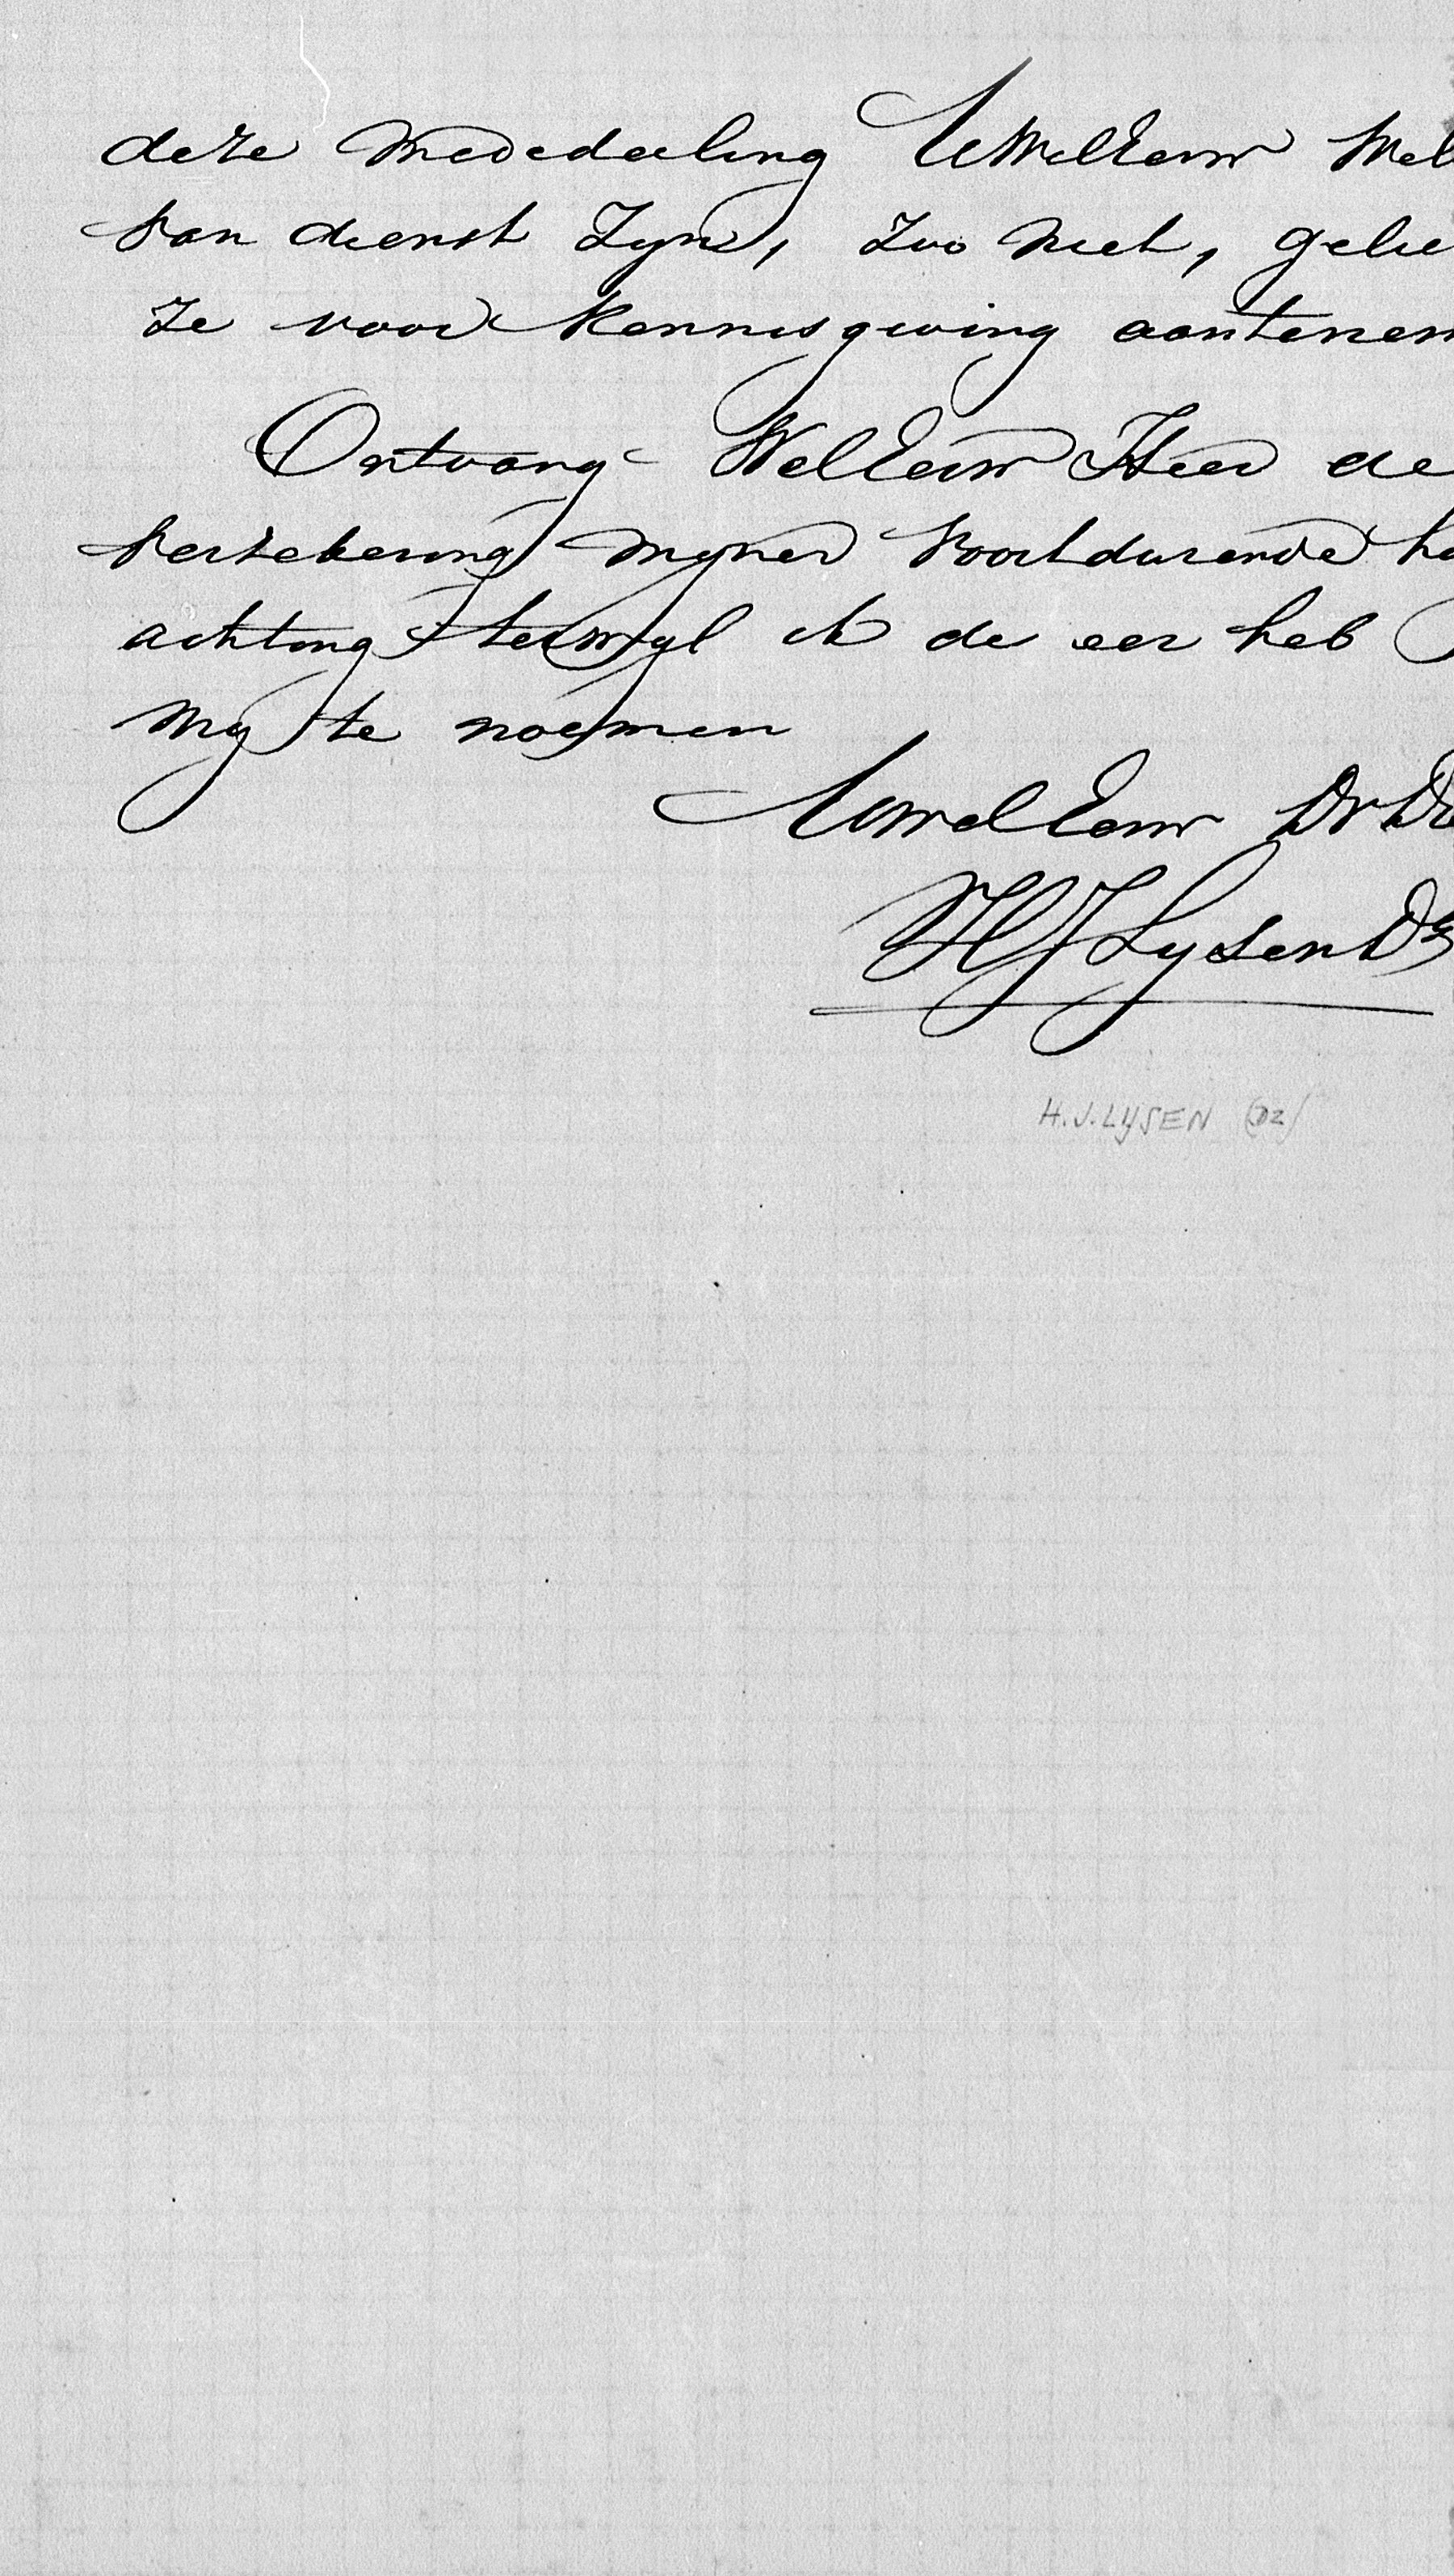 deze mededeeling UWelEerw Wel
van dienst zyn, zoo niet, gelie
ze voor kennisgeving aantenem
Ontvang WelEerw Heer de
verzekering myner voortdurende ho
achting terwyl ik de eer heb
my te noemen
UwelEerw Dr Di
HJ Lysen Dz
H.J. LIJSEN (DZ)